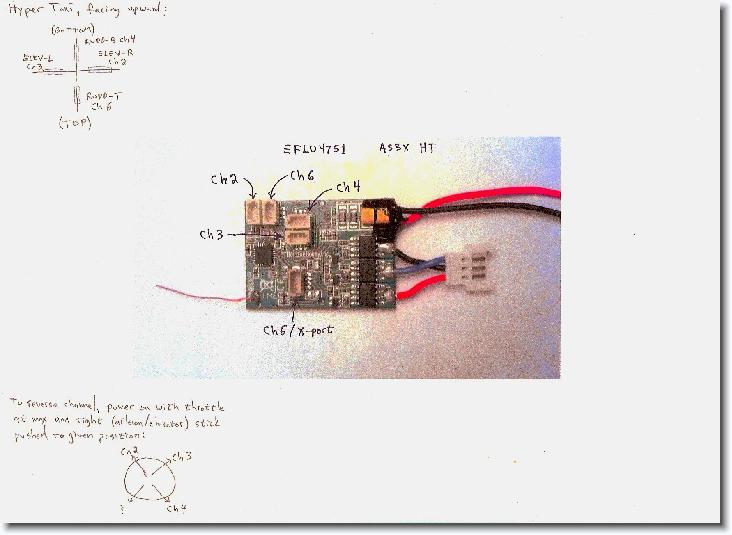 Hyper Taxi, facing upward:
(BOTTOM)
RUDD-B Ch4
ELEV-L
Ch3
ELEV-R
Ch2
RUDD-T
Ch 6
(TOP)
EFLU4751 AS3X HT
Ch2
Ch6
Ch4
Ch3
Ch5/X-port
To reverse channel, power on with throttle
at max and right (aileron/elevator) stick
pushed to given position:
Ch2
Ch3
?
Ch4